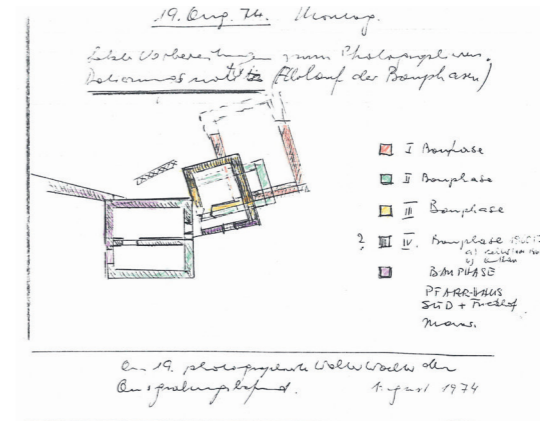 19. Aug. 74. Montag.
Letzte Vorbereitungen zum Photographieren.
(Ablauf der Bauphasen)
I Bauphase
II Bauphase
III Bauphase
? IV. Bauphase
BAUPHASE
PFARRHAUS
SÜD + Friedhof
Mauer.
Am 19. photographierte Walter den
Ausgrabungsbefund. August 1974